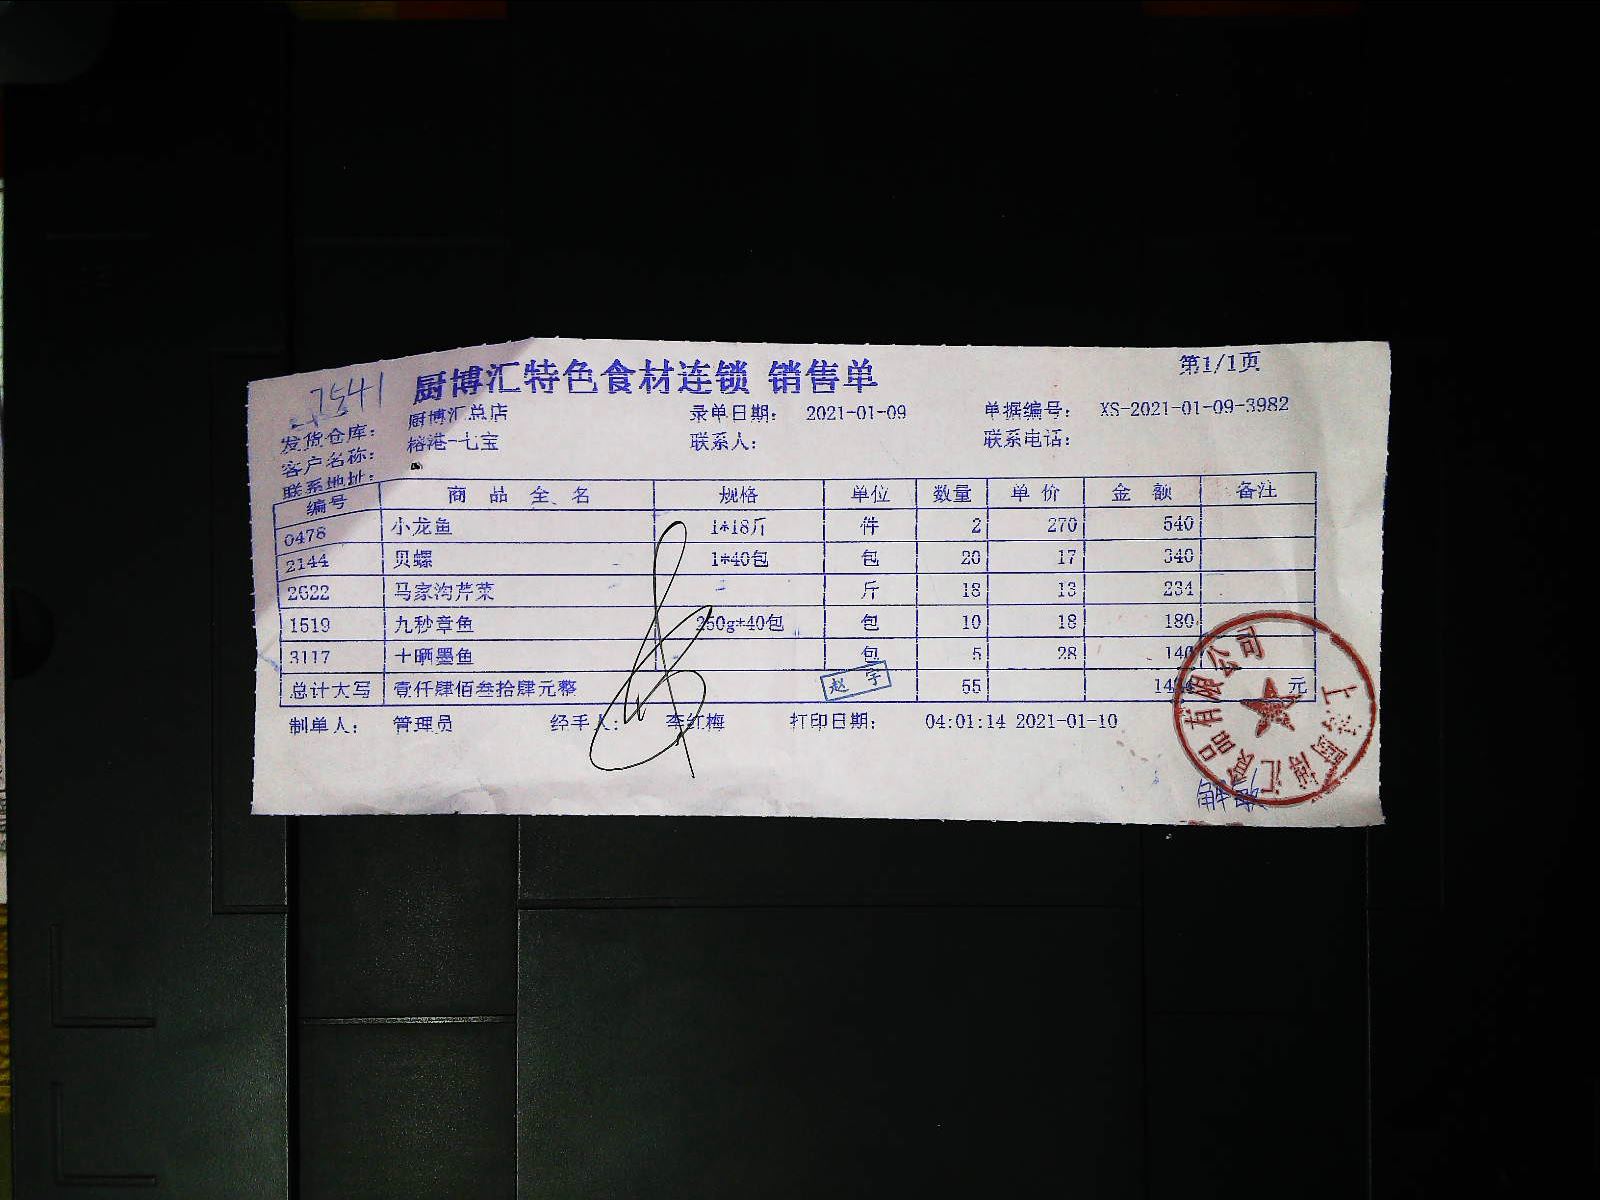 第1/1页
7541
厨博汇特色食材连锁 销售单
发货仓库： 厨博汇总店 录单日期： 2021-01-09 单据编号： XS-2021-01-09-3982
客户名称： 榕港-七宝 联系人： 联系电话：
联系地址：
编号 商品全名 规格 单位 数量 单价 金额 备注
0478 小龙鱼 1*18斤 件 2 270 540
2144 贝螺 1*40包 包 20 17 340
2622 马家沟芹菜 斤 18 13 234
1519 九秒章鱼 250g*40包 包 10 18 180
3117 十晒墨鱼 包 5 28 140
总计大写 壹仟肆佰叁拾肆元整 55 元
赵宇
制单人： 管理员 经手人： 李红梅 打印日期： 04:01:14 2021-01-10
上海厨博汇食品有限公司